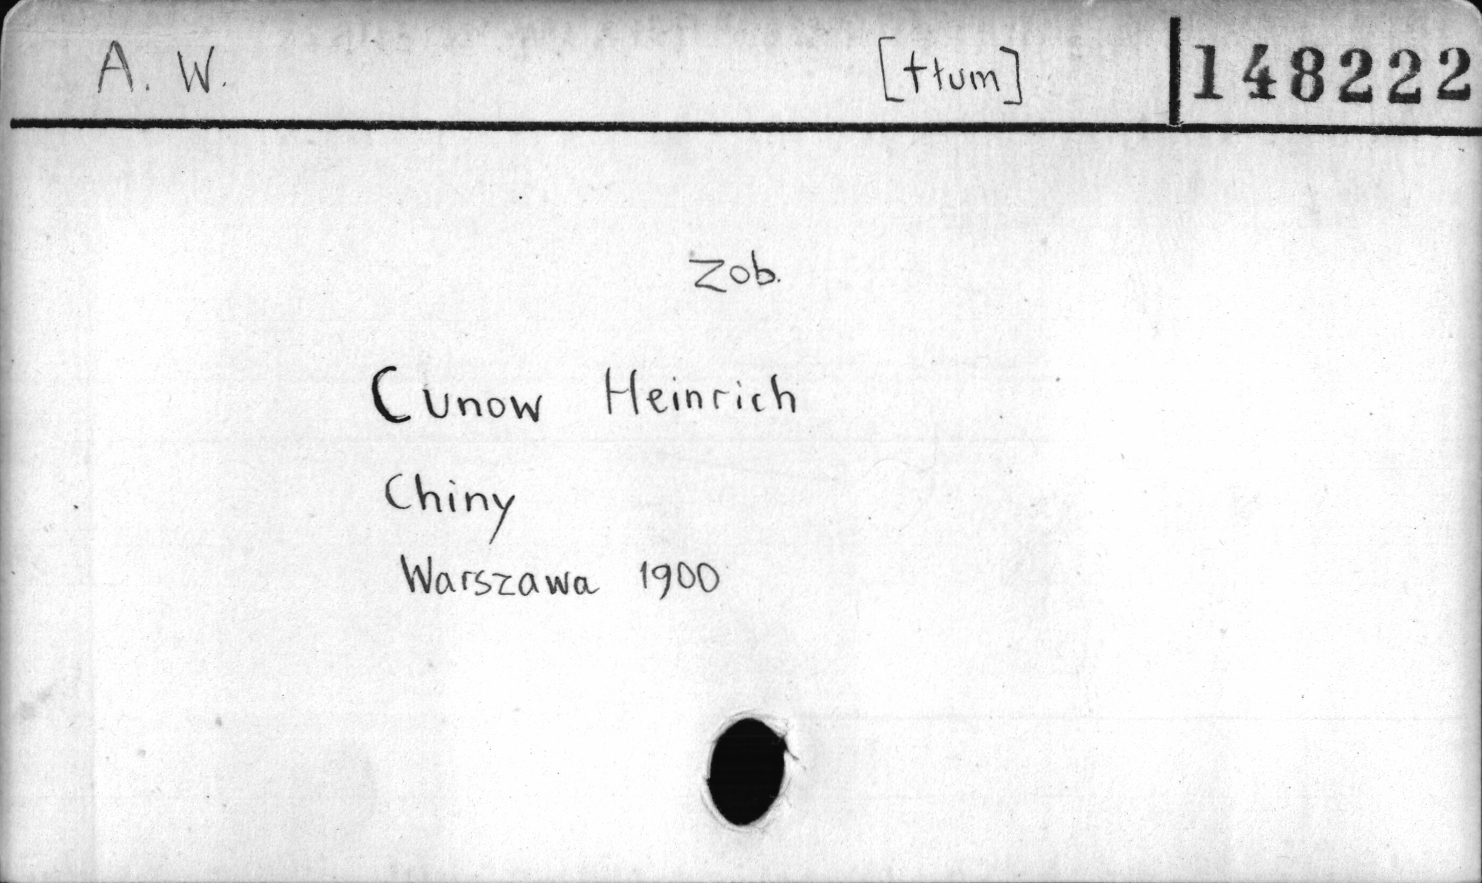 A. W. [tłum] 148222
Zob.
Cunow Heinrich
Chiny
Warszawa 1900